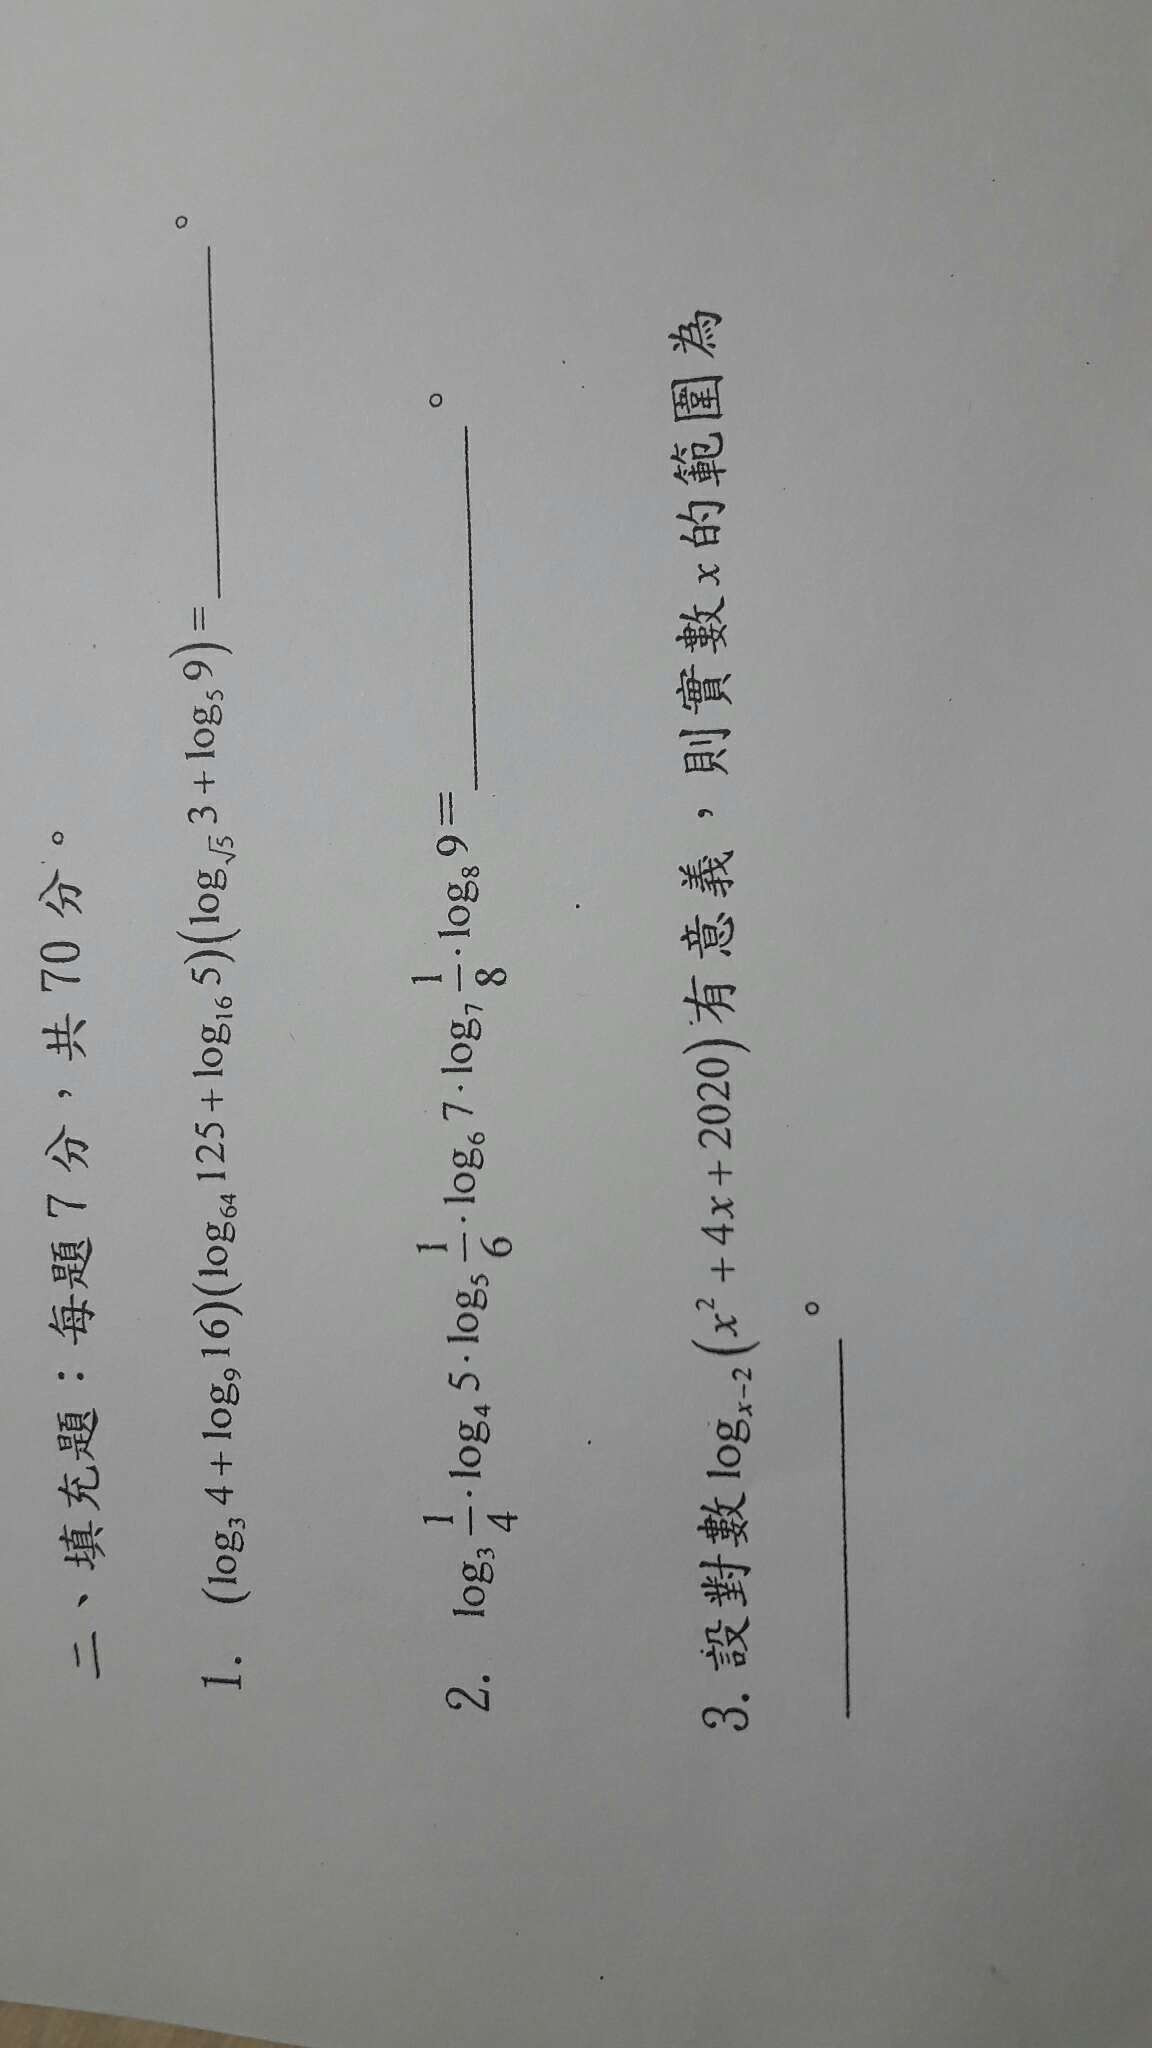 二、填充題：每題7分，共70分。
1. (log₃4+log₉16)(log₆₄125+log₁₆5)(log_√5 3+log₅9)=________。
2. log₃ 1/4·log₄5·log₅ 1/6·log₆7·log₇ 1/8·log₈9=________。
3. 設對數 logₓ₋₂(x²+4x+2020)有意義，則實數x的範圍為
________。